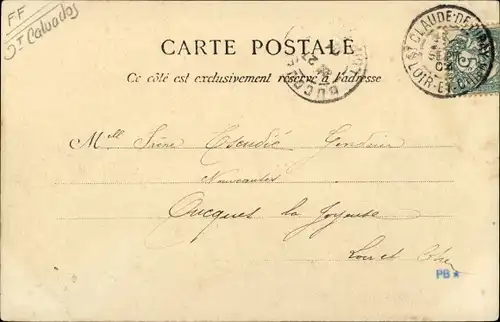 FF
Dt Calvados
CARTE POSTALE
Ce côté est exclusivement réservé à l'adresse
ST CLAUDE-DE-DIRAY
LOIR-ET-CHER
5
Mlle Irène Escudié
Nouveautés
Oucques la Joyeuse
Loir et Cher
PB★